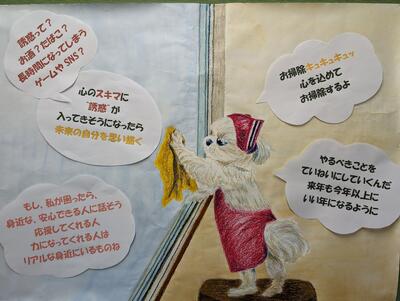 誘惑って？
お酒？たばこ？
長時間になってしまう
ゲームやSNS？
心のスキマに
“誘惑”が
入ってきそうになったら
未来の自分を思い描く
もし、私が困ったら、
身近な、安心できる人に話そう
応援してくれる人
力になってくれる人は
リアルな身近にいるものね
お掃除キュキュキュッ
心を込めて
お掃除するよ
やるべきことを
ていねいにしていくんだ
来年も今年以上に
いい年になるように